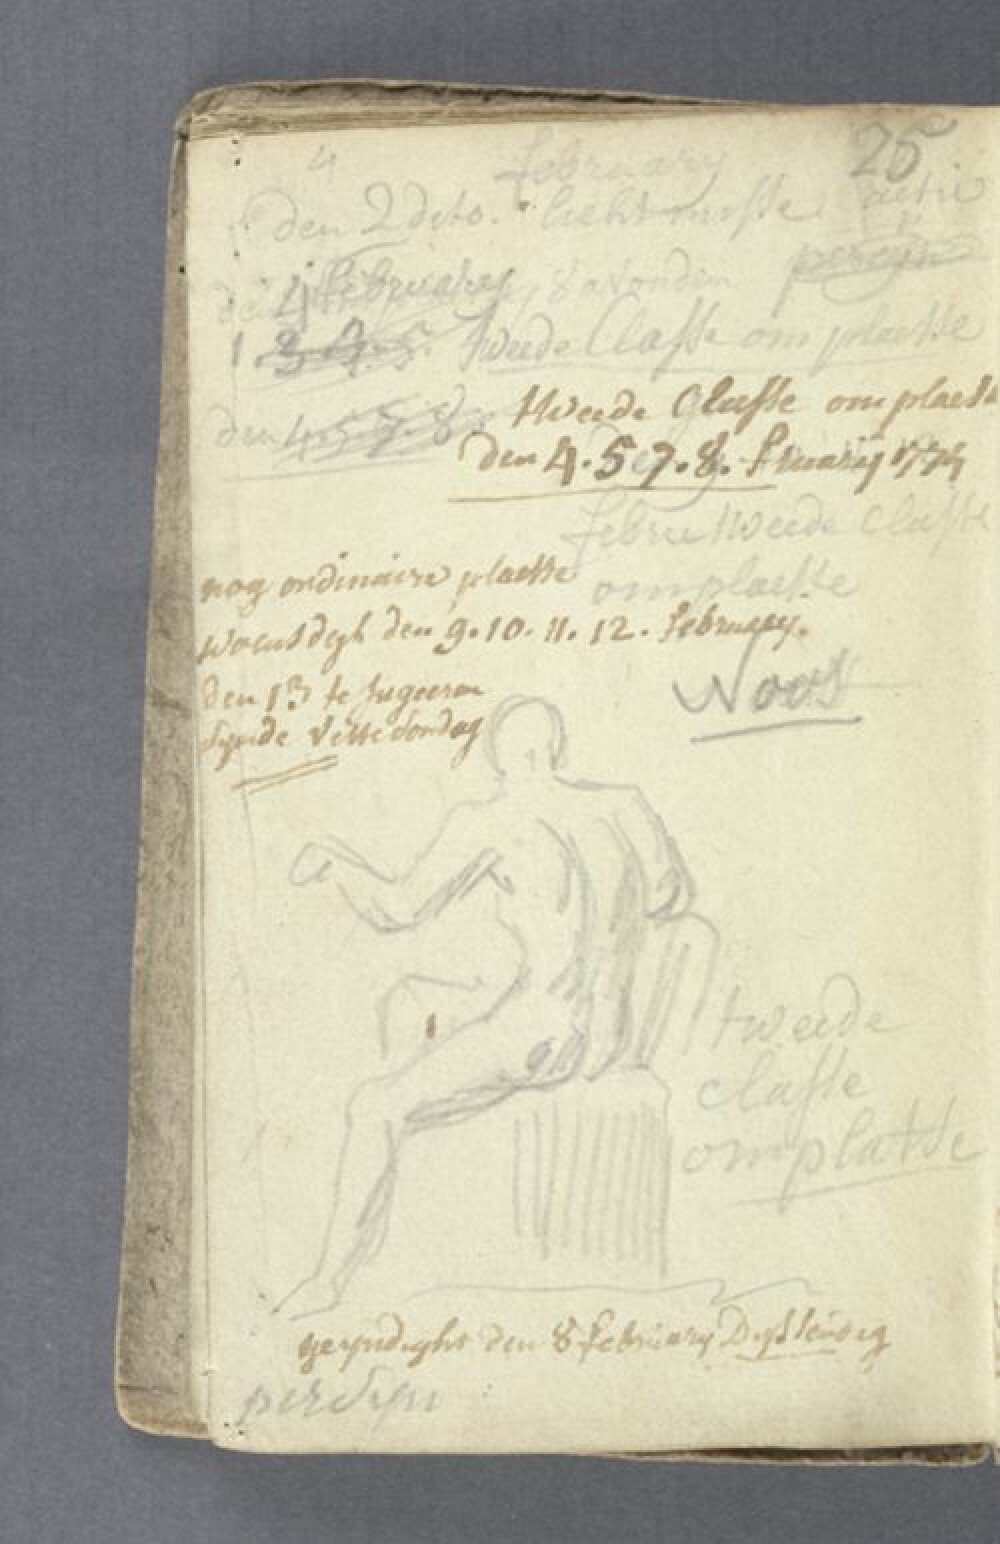 4 february 25
den 2 dito. lichtmisse actie
den 4 february, 8 avonden persijn
1 3 4 5. tweede Classe om plaetse
den 4 5 7. 8.
tweede Classe om plaetse
den 4. 5 7. 8. fruarÿ 1774
febru tweede Classe
omplaetse
nog ordinaire plaetse
woensdagh den 9. 10. 11. 12. february.
den 13 te jugeeren
synde vette sondag
Noos
tweede
classe
omplatse
geeyndight den 8 february Dystendag
persijn